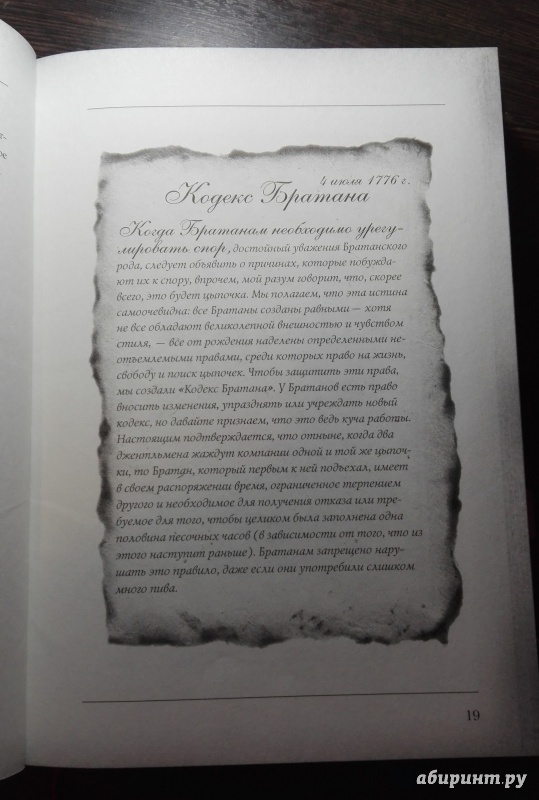 е-
ое
4 июля 1776 г.
Кодекс Братана
Когда Братанам необходимо урегу-
лировать спор, достойный уважения Братанского
рода, следует объявить о причинах, которые побужда-
ют их к спору, впрочем, мой разум говорит, что, скорее
всего, это будет цыпочка. Мы полагаем, что эта истина
самоочевидна: все Братаны созданы равными — хотя
не все обладают великолепной внешностью и чувством
стиля, — все от рождения наделены определенными не-
отъемлемыми правами, среди которых право на жизнь,
свободу и поиск цыпочек. Чтобы защитить эти права,
мы создали «Кодекс Братана». У Братанов есть право
вносить изменения, упразднять или учреждать новый
кодекс, но давайте признаем, что это ведь куча работы.
Настоящим подтверждается, что отныне, когда два
джентльмена жаждут компании одной и той же цыпоч-
ки, то Братан, который первым к ней подъехал, имеет
в своем распоряжении время, ограниченное терпением
другого и необходимое для получения отказа или тре-
буемое для того, чтобы целиком была заполнена одна
половина песочных часов (в зависимости от того, что из
этого наступит раньше). Братанам запрещено нару-
шать это правило, даже если они употребили слишком
много пива.
19
абиринт.ру